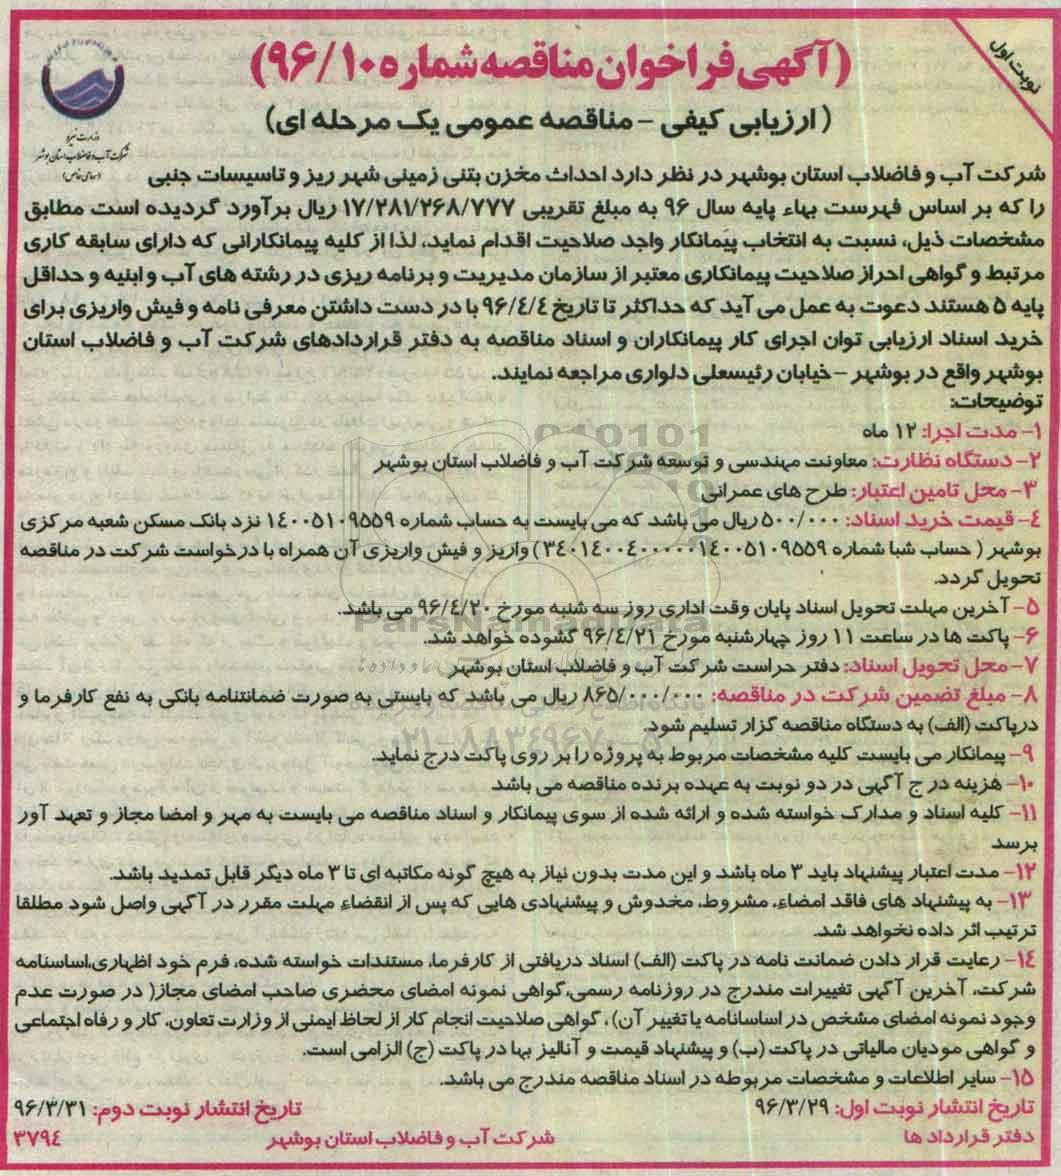 نوبت اول
(آگهی فراخوان مناقصه شماره ۹۶/۱۰)
(ارزیابی کیفی - مناقصه عمومی یک مرحله ای)
وزارت نیرو
شرکت آب و فاضلاب استان بوشهر
(سهامی خاص)
شرکت آب و فاضلاب استان بوشهر در نظر دارد احداث مخزن بتنی زمینی شهر ریز و تاسیسات جنبی
را که بر اساس فهرست بهاء پایه سال ۹۶ به مبلغ تقریبی ۱۷/۲۸۱/۲۶۸/۷۷۷ ریال برآورد گردیده است مطابق
مشخصات ذیل، نسبت به انتخاب پیمانکار واجد صلاحیت اقدام نماید، لذا از کلیه پیمانکارانی که دارای سابقه کاری
مرتبط و گواهی احراز صلاحیت پیمانکاری معتبر از سازمان مدیریت و برنامه ریزی در رشته های آب و ابنیه و حداقل
پایه ۵ هستند دعوت به عمل می آید که حداکثر تا تاریخ ۹۶/٤/٤ با در دست داشتن معرفی نامه و فیش واریزی برای
خرید اسناد ارزیابی توان اجرای کار پیمانکاران و اسناد مناقصه به دفتر قراردادهای شرکت آب و فاضلاب استان
بوشهر واقع در بوشهر - خیابان رئیسعلی دلواری مراجعه نمایند.
توضیحات:
۱- مدت اجرا: ۱۲ ماه
۲- دستگاه نظارت: معاونت مهندسی و توسعه شرکت آب و فاضلاب استان بوشهر
۳- محل تامین اعتبار: طرح های عمرانی
٤- قیمت خرید اسناد: ۵۰۰/۰۰۰ ریال می باشد که می بایست به حساب شماره ۱٤۰۰۵۱۰۹۵۵۹ نزد بانک مسکن شعبه مرکزی
بوشهر (حساب شبا شماره ۳٤۰۱٤۰۰٤۰۰۰۰۰۱٤۰۰۵۱۰۹۵۵۹) واریز و فیش واریزی آن همراه با درخواست شرکت در مناقصه
تحویل گردد.
۵- آخرین مهلت تحویل اسناد پایان وقت اداری روز سه شنبه مورخ ۹۶/٤/۲۰ می باشد.
۶- پاکت ها در ساعت ۱۱ روز چهارشنبه مورخ ۹۶/٤/۲۱ گشوده خواهد شد.
ParsNamadData
۷- محل تحویل اسناد: دفتر حراست شرکت آب و فاضلاب استان بوشهر
۸- مبلغ تضمین شرکت در مناقصه: ۸۶۵/۰۰۰/۰۰۰ ریال می باشد که بایستی به صورت ضمانتنامه بانکی به نفع کارفرما و
درپاکت (الف) به دستگاه مناقصه گزار تسلیم شود.
۹- پیمانکار می بایست کلیه مشخصات مربوط به پروژه را بر روی پاکت درج نماید.
۱۰- هزینه درج آگهی در دو نوبت به عهده برنده مناقصه می باشد
۱۱- کلیه اسناد و مدارک خواسته شده و ارائه شده از سوی پیمانکار و اسناد مناقصه می بایست به مهر و امضا مجاز و تعهد آور
برسد
۱۲- مدت اعتبار پیشنهاد باید ۳ ماه باشد و این مدت بدون نیاز به هیچ گونه مکاتبه ای تا ۳ ماه دیگر قابل تمدید باشد.
۱۳- به پیشنهاد های فاقد امضاء، مشروط، مخدوش و پیشنهادی هایی که پس از انقضاء مهلت مقرر در آگهی واصل شود مطلقا
ترتیب اثر داده نخواهد شد.
۱٤- رعایت قرار دادن ضمانت نامه در پاکت (الف) اسناد دریافتی از کارفرما، مستندات خواسته شده، فرم خود اظهاری،اساسنامه
شرکت، آخرین آگهی تغییرات مندرج در روزنامه رسمی،گواهی نمونه امضای محضری صاحب امضای مجاز( در صورت عدم
وجود نمونه امضای مشخص در اساسانامه یا تغییر آن)، گواهی صلاحیت انجام کار از لحاظ ایمنی از وزارت تعاون، کار و رفاه اجتماعی
و گواهی مودیان مالیاتی در پاکت (ب) و پیشنهاد قیمت و آنالیز بها در پاکت (ج) الزامی است.
۱۵- سایر اطلاعات و مشخصات مربوطه در اسناد مناقصه مندرج می باشد.
تاریخ انتشار نوبت اول: ۹۶/۳/۲۹ تاریخ انتشار نوبت دوم: ۹۶/۳/۳۱
دفتر قرارداد ها شرکت آب و فاضلاب استان بوشهر ۳۷۹٤